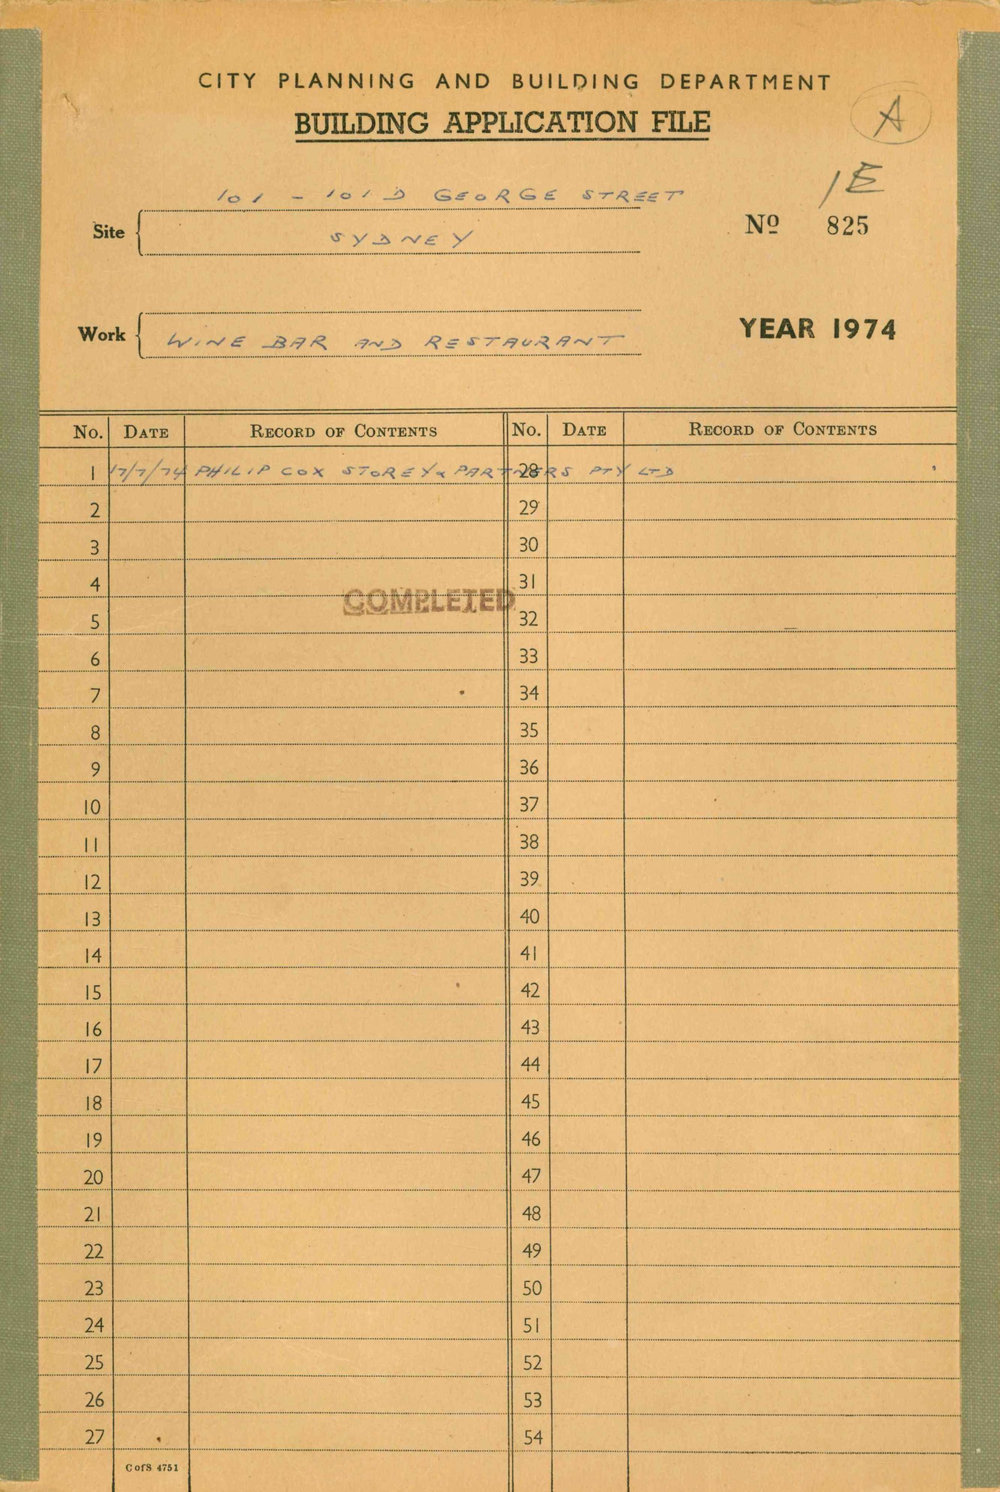 CITY PLANNING AND BUILDING DEPARTMENT
BUILDING APPLICATION FILE
A
1E
101 - 101 D GEORGE STREET
Site
SYDNEY
No 825
Work
WINE BAR AND RESTAURANT
YEAR 1974
No. DATE RECORD OF CONTENTS No. DATE RECORD OF CONTENTS
1 17/7/74 PHILIP COX STOREY & PARTNERS PTY LTD 28
2 29
3 30
4 31
COMPLETED
5 32
6 33
7 34
8 35
9 36
10 37
11 38
12 39
13 40
14 41
15 42
16 43
17 44
18 45
19 46
20 47
21 48
22 49
23 50
24 51
25 52
26 53
27 54
C of S 4751